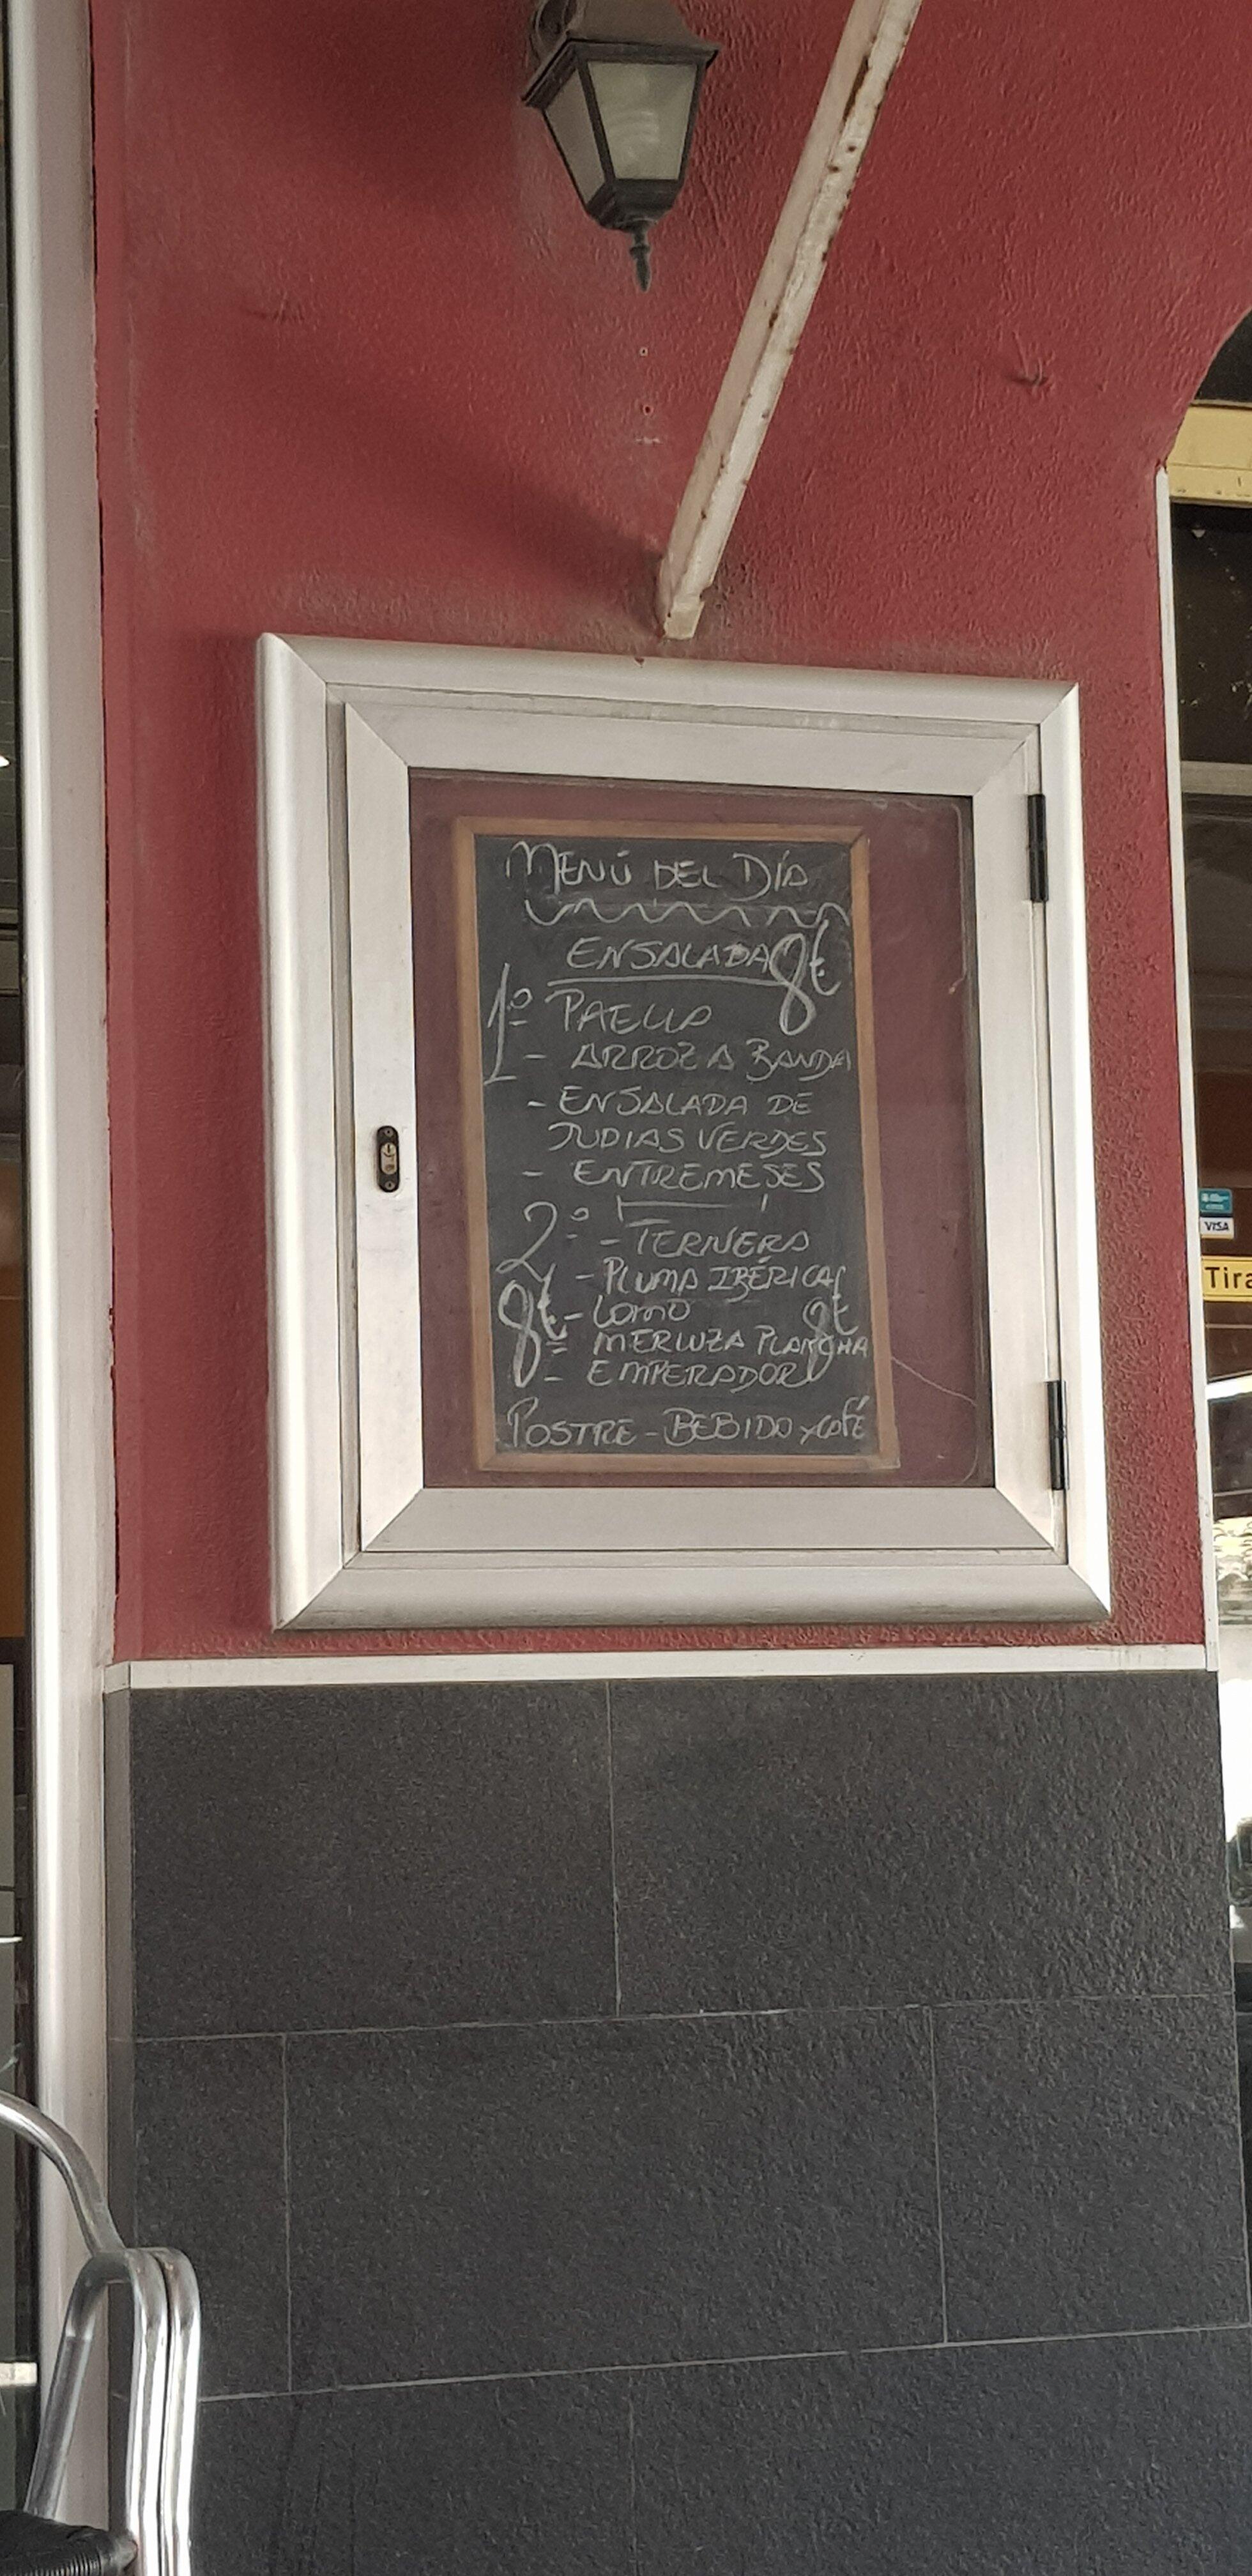 MENÚ DEL DÍA
ENSALADA 8€
1º PAELLA
- ARROZ A BANDA
- ENSALADA DE
JUDIAS VERDES
- ENTREMESES
2º - TERNERA
- PLUMA IBÉRICA
8€ - LOMO 8€
= MERLUZA PLANCHA
- EMPERADOR
POSTRE - BEBIDA Y CAFÉ
VISA
Tira